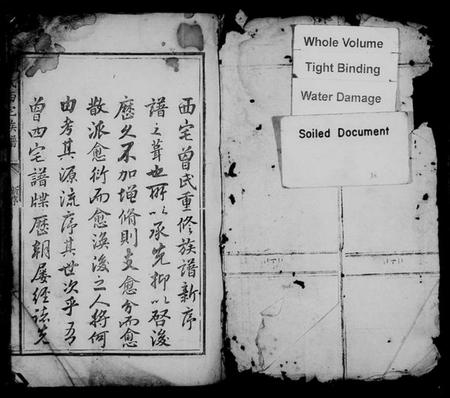 西宅曾氏重修族譜新序
譜之葺也所以承先抑以啓後
歷久不加增脩則支愈分而愈
散派愈衍而愈渙後之人將何
由考其源流序其世次乎吾
曾西宅譜牒歷朝屢經諸先
Whole Volume
Tight Binding
Water Damage
Soiled Document